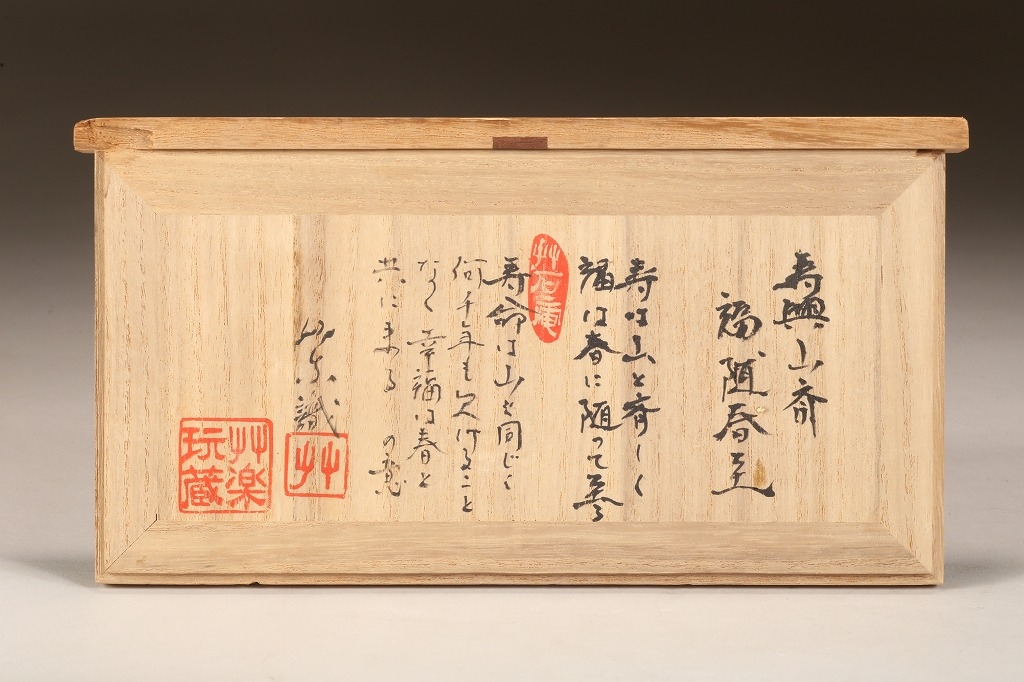 寿與山斉
福随春至
寿は山と斉しく
福は春に随って至る
艸石庵
寿命は山と同じく
何千年も欠けること
なく幸福は春と
共に来る の意
識
艸
艸楽
玩蔵